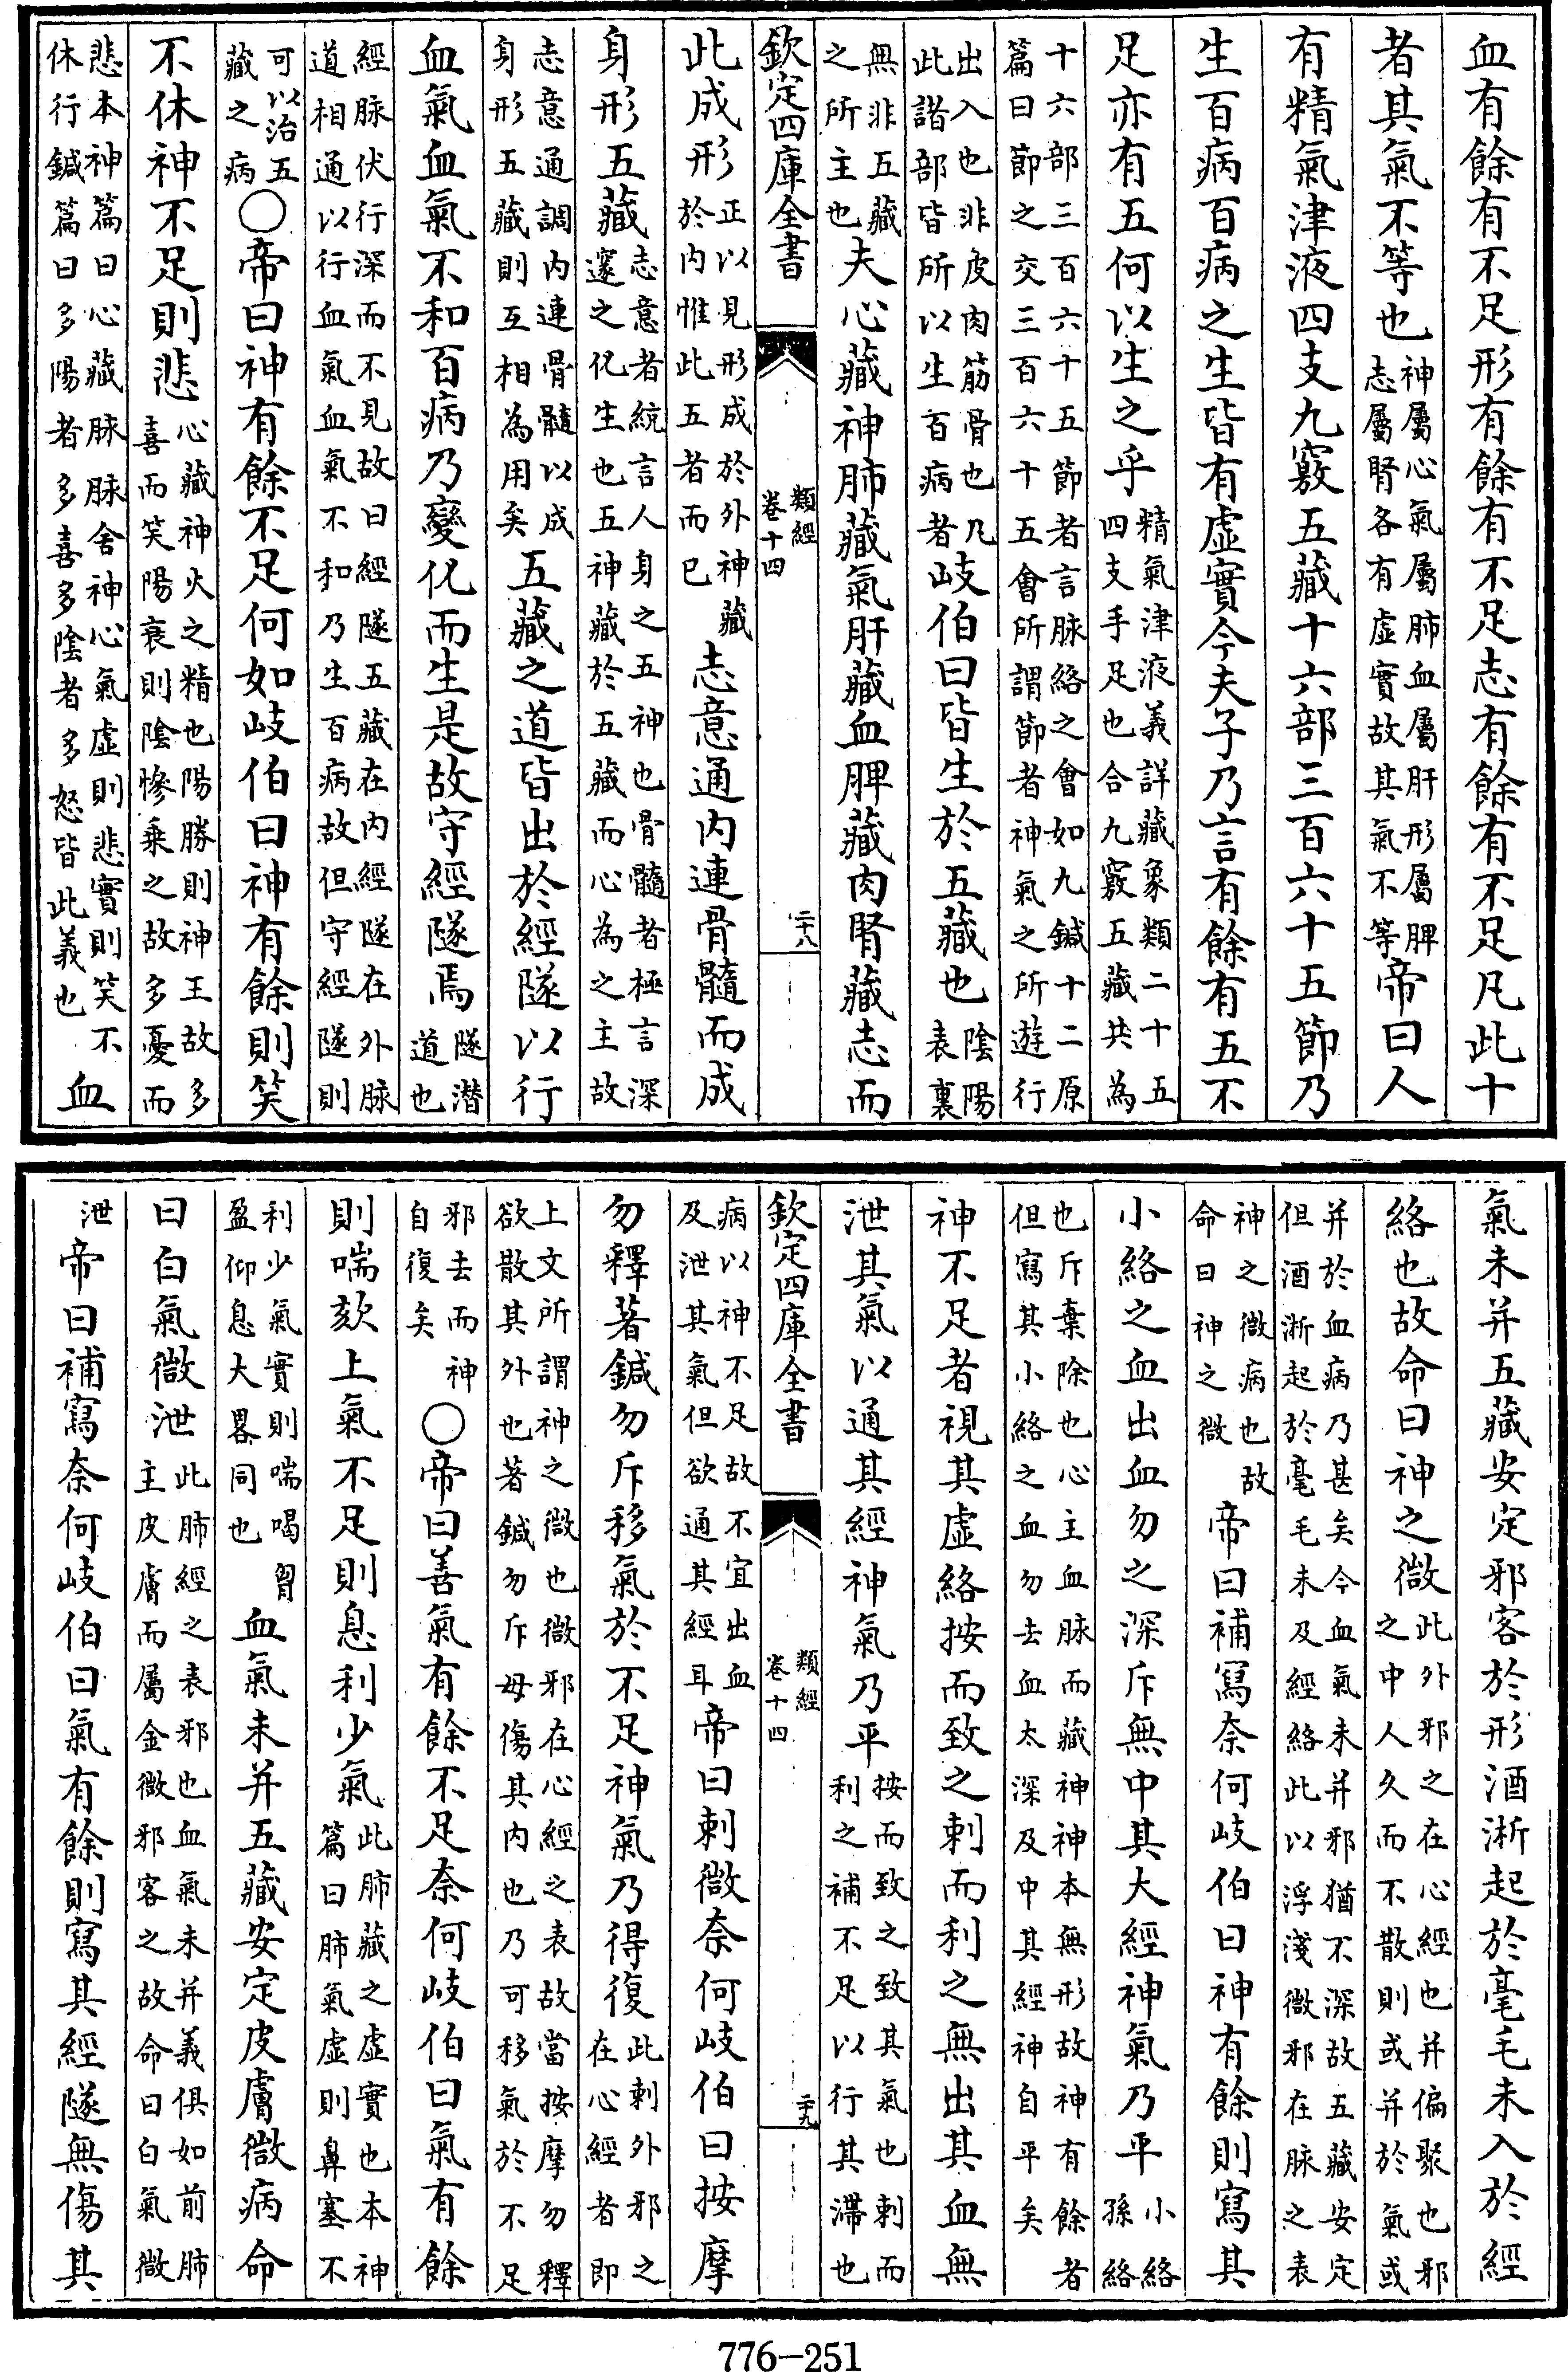 血有餘有不足形有餘有不足志有餘有不足凡此十
者其氣不等也神屬心氣屬肺血屬肝形屬脾志屬腎各有虛實故其氣不等帝曰人
有精氣津液四支九竅五藏十六部三百六十五節乃
生百病百病之生皆有虛實今夫子乃言有餘有五不
足亦有五何以生之乎精氣津液義詳藏象類二十五四支手足也合九竅五藏共為
十六部三百六十五節者言脉絡之會如九鍼十二原篇曰節之交三百六十五會所謂節者神氣之所遊行
出入也非皮肉筋骨也凡此諸部皆所以生百病者岐伯曰皆生於五藏也陰陽表裏
無非五藏之所主也夫心藏神肺藏氣肝藏血脾藏肉腎藏志而
欽定四庫全書
類經
卷十四
二十八
此成形正以見形成於外神藏於内惟此五者而已志意通内連骨髓而成
身形五藏志意者統言人身之五神也骨髓者極言深邃之化生也五神藏於五藏而心為之主故
志意通調内連骨髓以成身形五藏則互相為用矣五藏之道皆出於經隧以行
血氣血氣不和百病乃變化而生是故守經隧焉隧潛道也
經脉伏行深而不見故曰經隧五藏在内經隧在外脉道相通以行血氣血氣不和乃生百病故但守經隧則
可以治五藏之病○帝曰神有餘不足何如岐伯曰神有餘則笑
不休神不足則悲心藏神火之精也陽勝則神王故多喜而笑陽衰則陰慘乘之故多憂而
悲本神篇曰心藏脉脉舍神心氣虛則悲實則笑不休行鍼篇曰多陽者多喜多陰者多怒皆此義也血
氣未并五藏安定邪客於形洒淅起於毫毛未入於經
絡也故命曰神之微此外邪之在心經也并偏聚也邪之中人久而不散則或并於氣或
并於血病乃甚矣今血氣未并邪猶不深故五藏安定但洒淅起於毫毛未及經絡此以浮淺微邪在脉之表
神之微病也故命曰神之微帝曰補寫奈何岐伯曰神有餘則寫其
小絡之血出血勿之深斥無中其大經神氣乃平小絡孫絡
也斥棄除也心主血脉而藏神神本無形故神有餘者但寫其小絡之血勿去血太深及中其經神自平矣
神不足者視其虛絡按而致之刺而利之無出其血無
泄其氣以通其經神氣乃平按而致之致其氣也刺而利之補不足以行其滯也
欽定四庫全書
類經
卷十四
二十九
病以神不足故不宜出血及泄其氣但欲通其經耳帝曰刺微奈何岐伯曰按摩
勿釋著鍼勿斥移氣於不足神氣乃得復此刺外邪之在心經者即
上文所謂神之微也微邪在心經之表故當按摩勿釋欲散其外也著鍼勿斥毋傷其内也乃可移氣於不足
邪去而神自復矣○帝曰善氣有餘不足奈何岐伯曰氣有餘
則喘欬上氣不足則息利少氣此肺藏之虛實也本神篇曰肺氣虛則鼻塞不
利少氣實則喘喝胷盈仰息大畧同也血氣未并五藏安定皮膚微病命
曰白氣微泄此肺經之表邪也血氣未并義俱如前肺主皮膚而屬金微邪客之故命曰白氣微
泄帝曰補寫奈何岐伯曰氣有餘則寫其經隧無傷其
776-251